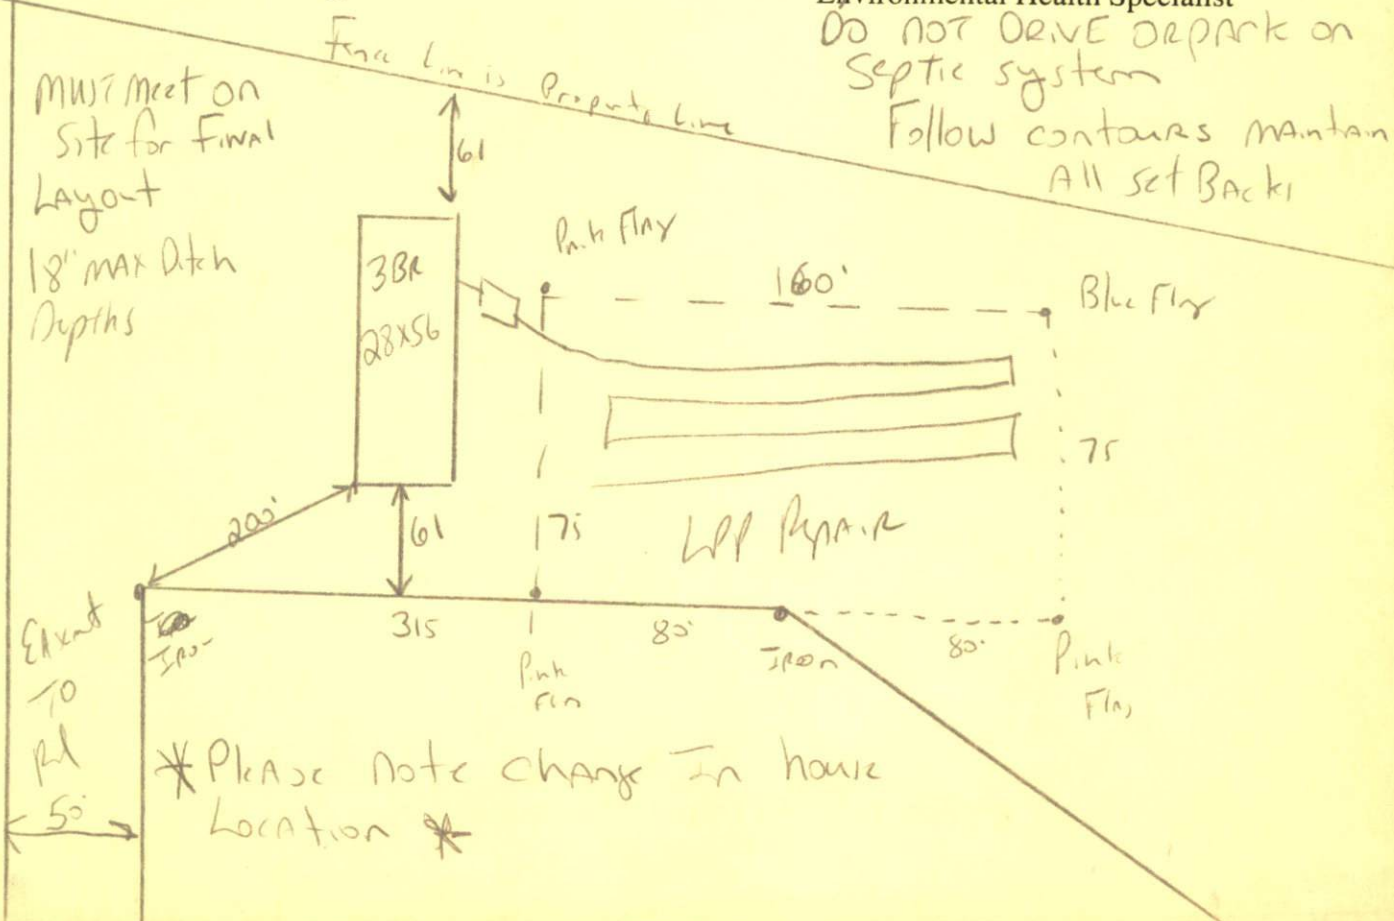 Environmental Health Specialist
DO NOT DRIVE OR PARK on
Septic system
Follow contours MAintAin
All setBAcks
Fence Line is Property Line
MUST Meet on
Site for FINAL
LAyout
18" MAX Ditch
Depths
61
Pink Flag
3BR
28X56
160'
Blue Flag
75
200'
61
75
LPP RepAiR
315
80'
80'
Iron
Iron
Pink
Flag
Pink
Flag
TO
Rd
50'
*PleAse note chAnge In house
LocAtion *